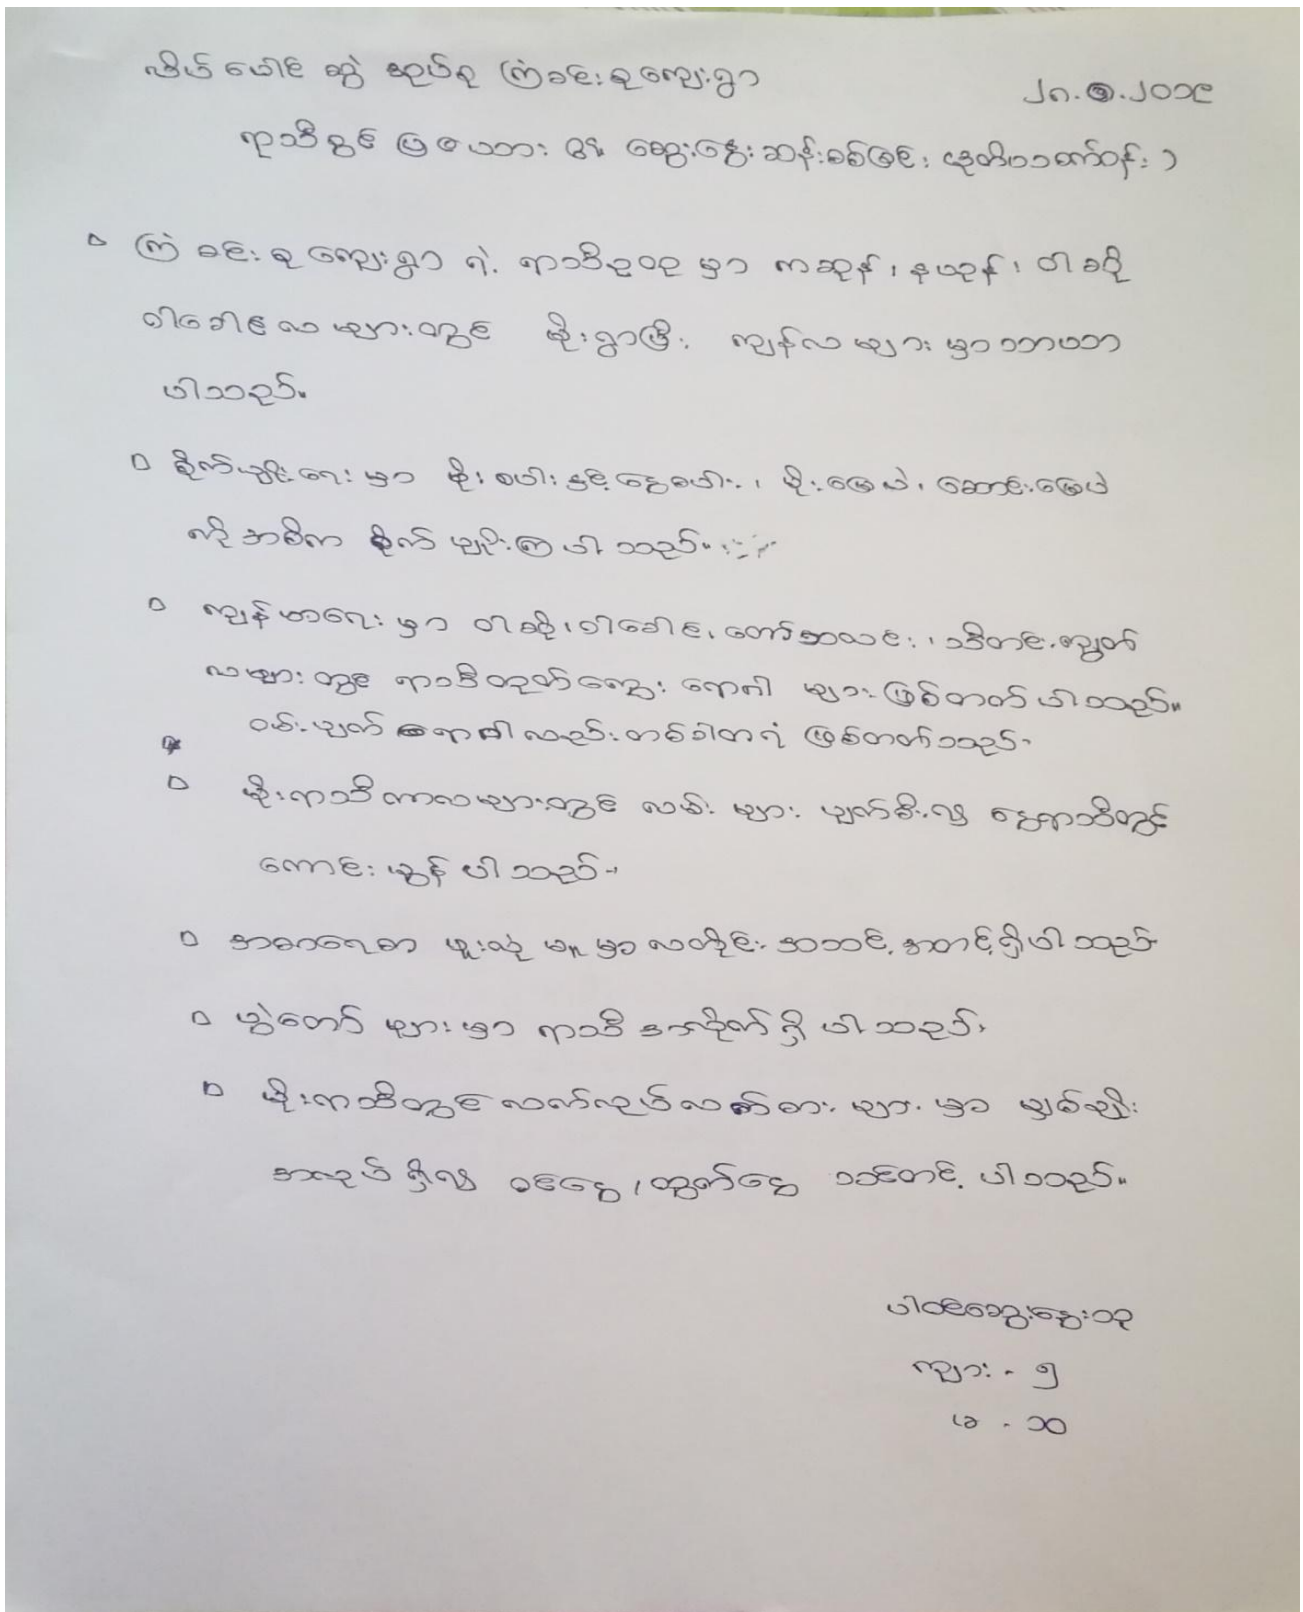 လိပ်ပေါင် ဆွဲ အုပ်စု ကြံခင်းစု ကျေးရွာ
၂၈.၁.၂၀၁၉
ရာသီခွင် ပြဇယား ဆွေးနွေးဆန်းစစ်ခြင်း
ကြံခင်းစု ကျေးရွာ ရဲ့ ရာသီဥတု မှာ ကဆုန်၊ နယုန်၊ ဝါဆို
ဝါခေါင်လများတွင် မိုးရွာပြီး ကျန်လများမှာ သာယာ
ပါသည်။
စိုက်ပျိုးရေးမှာ မိုးစပါးနှင့်နွေစပါး၊ မိုးမြေပဲ၊ ဆောင်းမြေပဲ
ကို အဓိက စိုက်ပျိုးကြပါသည်။
ကျန်းမာရေးမှာ ဝါဆို၊ ဝါခေါင်၊ တော်သလင်း၊ သီတင်းကျွတ်
လများတွင် ရာသီတုတ်ကွေး ရောဂါများဖြစ်တတ်ပါသည်။
ဝမ်းပျက်ရောဂါလည်းတစ်ခါတရံ ဖြစ်တတ်သည်။
မိုးရာသီကာလများတွင် လမ်းများ ပျက်စီး၍ နွေရာသီတွင်
ကောင်းမွန်ပါသည်။
အစာရေစာ ဖူလုံမှု မှာလတိုင်း အသင့်အတင့်ရှိပါသည်
ပွဲတော်များမှာ ရာသီအလိုက်ရှိပါသည်။
မိုးရာသီတွင်လက်လုပ်လက်စားများမှာ မျှစ်ချိုး
အလုပ်ရှိ၍ ဝင်ငွေ၊ ထွက်ငွေ သင့်တင့်ပါသည်။
ပါဝင်ဆွေးနွေးသူ
ကျား - ၅
မ - ၁၀